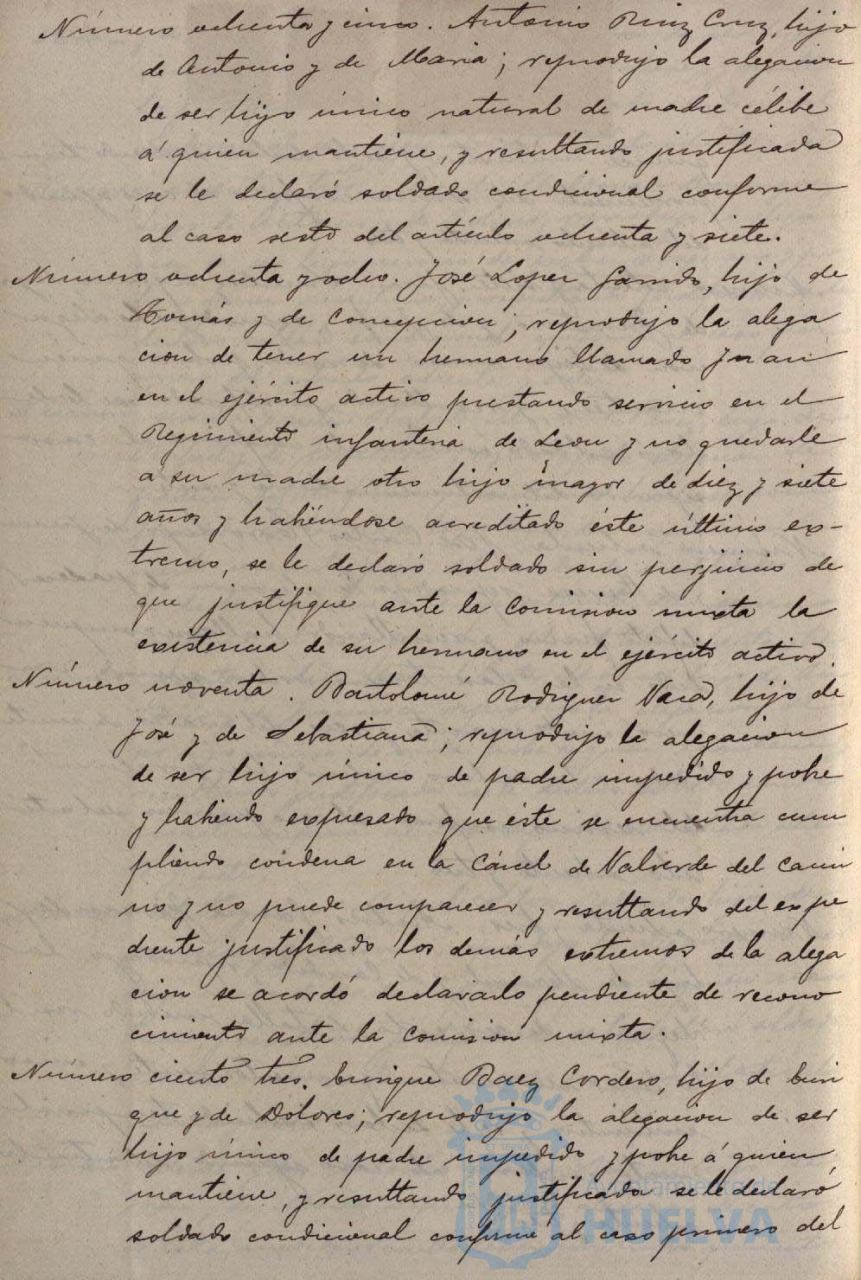 Número ochenta y cinco. Antonio Ruiz Cruz, hijo
de Antonio y de Maria; reprodujo la alegacion
de ser hijo único natural de madre célibe
á quien mantiene, y resultando justificada
se le declaró soldado condicional conforme
al caso sesto del artículo ochenta y siete.
Número ochenta y ocho. José Lopez Garrido, hijo de
Tomás y de Concepcion; reprodujo la alega
cion de tener un hermano llamado Juan
en el ejército activo prestando servicio en el
Regimiento infanteria de Leon y no quedarle
a su madre otro hijo mayor de diez y siete
años y habiéndose acreditado éste último ex-
tremo, se le declaró soldado sin perjuicio de
que justifique ante la Comision mixta la
existencia de su hermano en el ejército activo.
Número noventa. Bartolomé Rodriguez Vaca, hijo de
José y de Sebastiana; reprodujo la alegacion
de ser hijo único de padre impedido y pobre
y habiendo expresado que éste se encuentra cum
pliendo condena en la Cárcel de Valverde del Cami
no y no puede comparecer y resultando del expe
diente justificado los demás extremos de la alega
cion se acordó declararlo pendiente de recono
cimiento ante la Comision mixta.
Número ciento tres. Enrique Baez Cordero, hijo de Enri
que y de Dolores; reprodujo la alegacion de ser
hijo único de padre impedido y pobre á quien
mantiene, y resultando justificado se le declaró
soldado condicional conforme al caso primero del
Ayuntamiento de
HUELVA